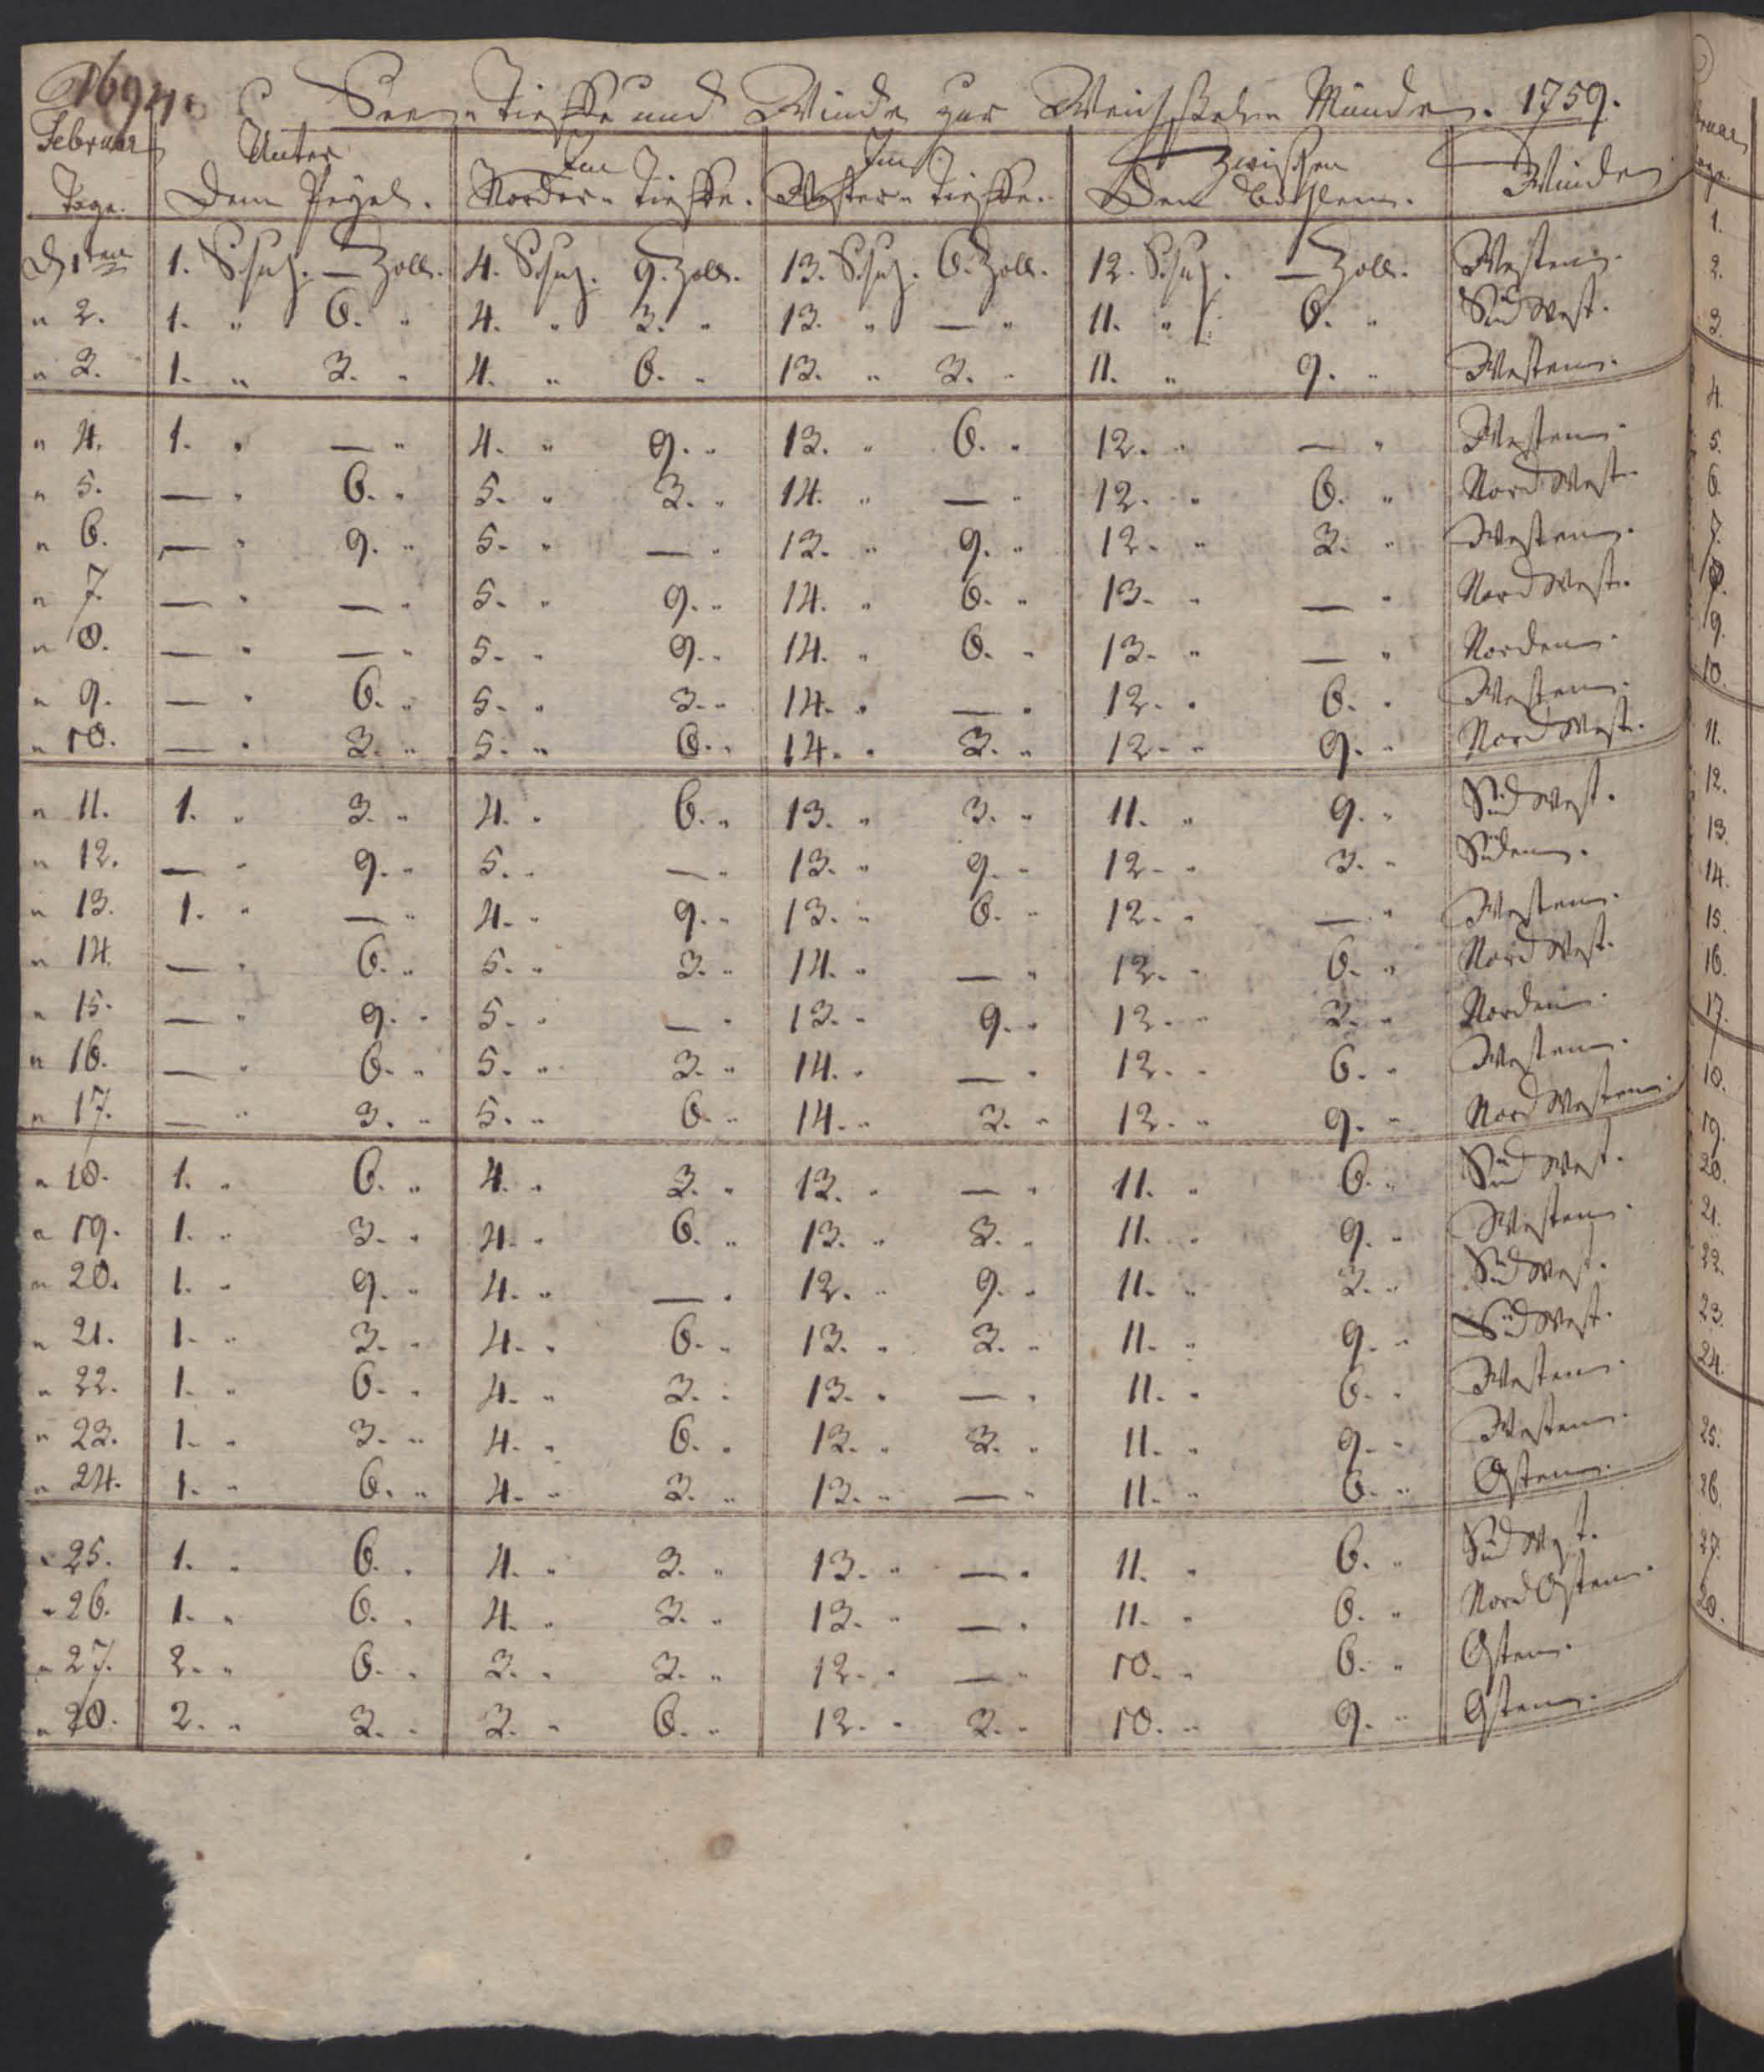 1694.
See- Tieffe und Winde zur Weichselmünde. 1759.
Februar Unter Im Im Zwischen
Tage. Dem Pegel. Norder- Tieffe. Wester- Tieffe. Den Winde
D 1ten 1. Schuh. — Zoll. 4. Schuh. 9. Zoll. 13. Schuh. 6. Zoll. 12. Schuh. — Zoll. Westen.
" 2. 1. " 6. " 4. " 3. " 13. " — " 11. " 6. " Süd West.
" 3. 1. " 3. " 4. " 6. " 13. " 3. " 11. " 9. " Westen.
" 4. 1. " — " 4. " 9. " 13. " 6. " 12. " — " Westen.
" 5. — " 6. " 5. " 3. " 14. " — " 12. " 6. " Nord West.
" 6. — " 9. " 5. " — " 13. " 9. " 12. " 3. " Westen.
" 7. — " — " 5. " 9. " 14. " 6. " 13. " — " Nord West.
" 8. — " — " 5. " 9. " 14. " 6. " 13. " — " Norden.
" 9. — " 6. " 5. " 3. " 14. " — " 12. " 6. " Westen.
" 10. — " 3. " 5. " 6. " 14. " 3. " 12. " 9. " Nord West.
" 11. 1. " 3. " 4. " 6. " 13. " 3. " 11. " 9. " Süd West.
" 12. — " 9. " 5. " — " 13. " 9. " 12. " 3. " Süden.
" 13. 1. " — " 4. " 9. " 13. " 6. " 12. " — " Westen.
" 14. — " 6. " 5. " 3. " 14. " — " 12. " 6. " Nord West.
" 15. — " 9. " 5. " — " 13. " 9. " 12. " 3. " Norden.
" 16. — " 6. " 5. " 3. " 14. " — " 12. " 6. " Westen.
" 17. — " 3. " 5. " 6. " 14. " 3. " 12. " 9. " Nord Westen.
" 18. 1. " 6. " 4. " 3. " 13. " — " 11. " 6. " Süd West.
" 19. 1. " 3. " 4. " 6. " 13. " 3. " 11. " 9. " Westen.
" 20. 1. " 9. " 4. " — " 12. " 9. " 11. " 3. " Süd West.
" 21. 1. " 3. " 4. " 6. " 13. " 3. " 11. " 9. " Süd West.
" 22. 1. " 6. " 4. " 3. " 13. " — " 11. " 6. " Westen.
" 23. 1. " 3. " 4. " 6. " 13. " 3. " 11. " 9. " Westen.
" 24. 1. " 6. " 4. " 3. " 13. " — " 11. " 6. " Osten.
" 25. 1. " 6. " 4. " 3. " 13. " — " 11. " 6. " Süd West.
" 26. 1. " 6. " 4. " 3. " 13. " — " 11. " 6. " Nord Osten.
" 27. 2. " 6. " 3. " 3. " 12. " — " 10. " 6. " Osten.
" 28. 2. " 3. " 3. " 6. " 12. " 3. " 10. " 9. " Osten.
1.
2.
3.
4.
5.
6.
7.
8.
9.
10.
11.
12.
13.
14.
15.
16.
17.
18.
19.
20.
21.
22.
23.
24.
25.
26.
27.
28.